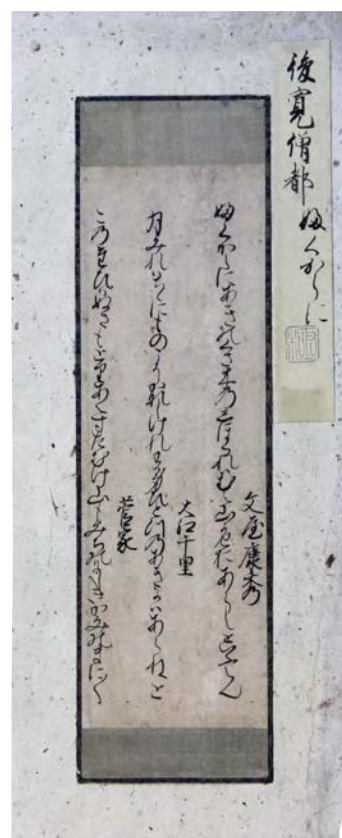 俊寛僧都 ふくからに
文屋康秀
ふくからにあきの草木のしほるれはむへ山かせをあらしといふらん
大江千里
月みれはちゝにものこそかなしけれわか身ひとつのあきにはあらねと
菅家
このたひはぬさもとりあへすたむけ山もみちのにしきかみのまに〱